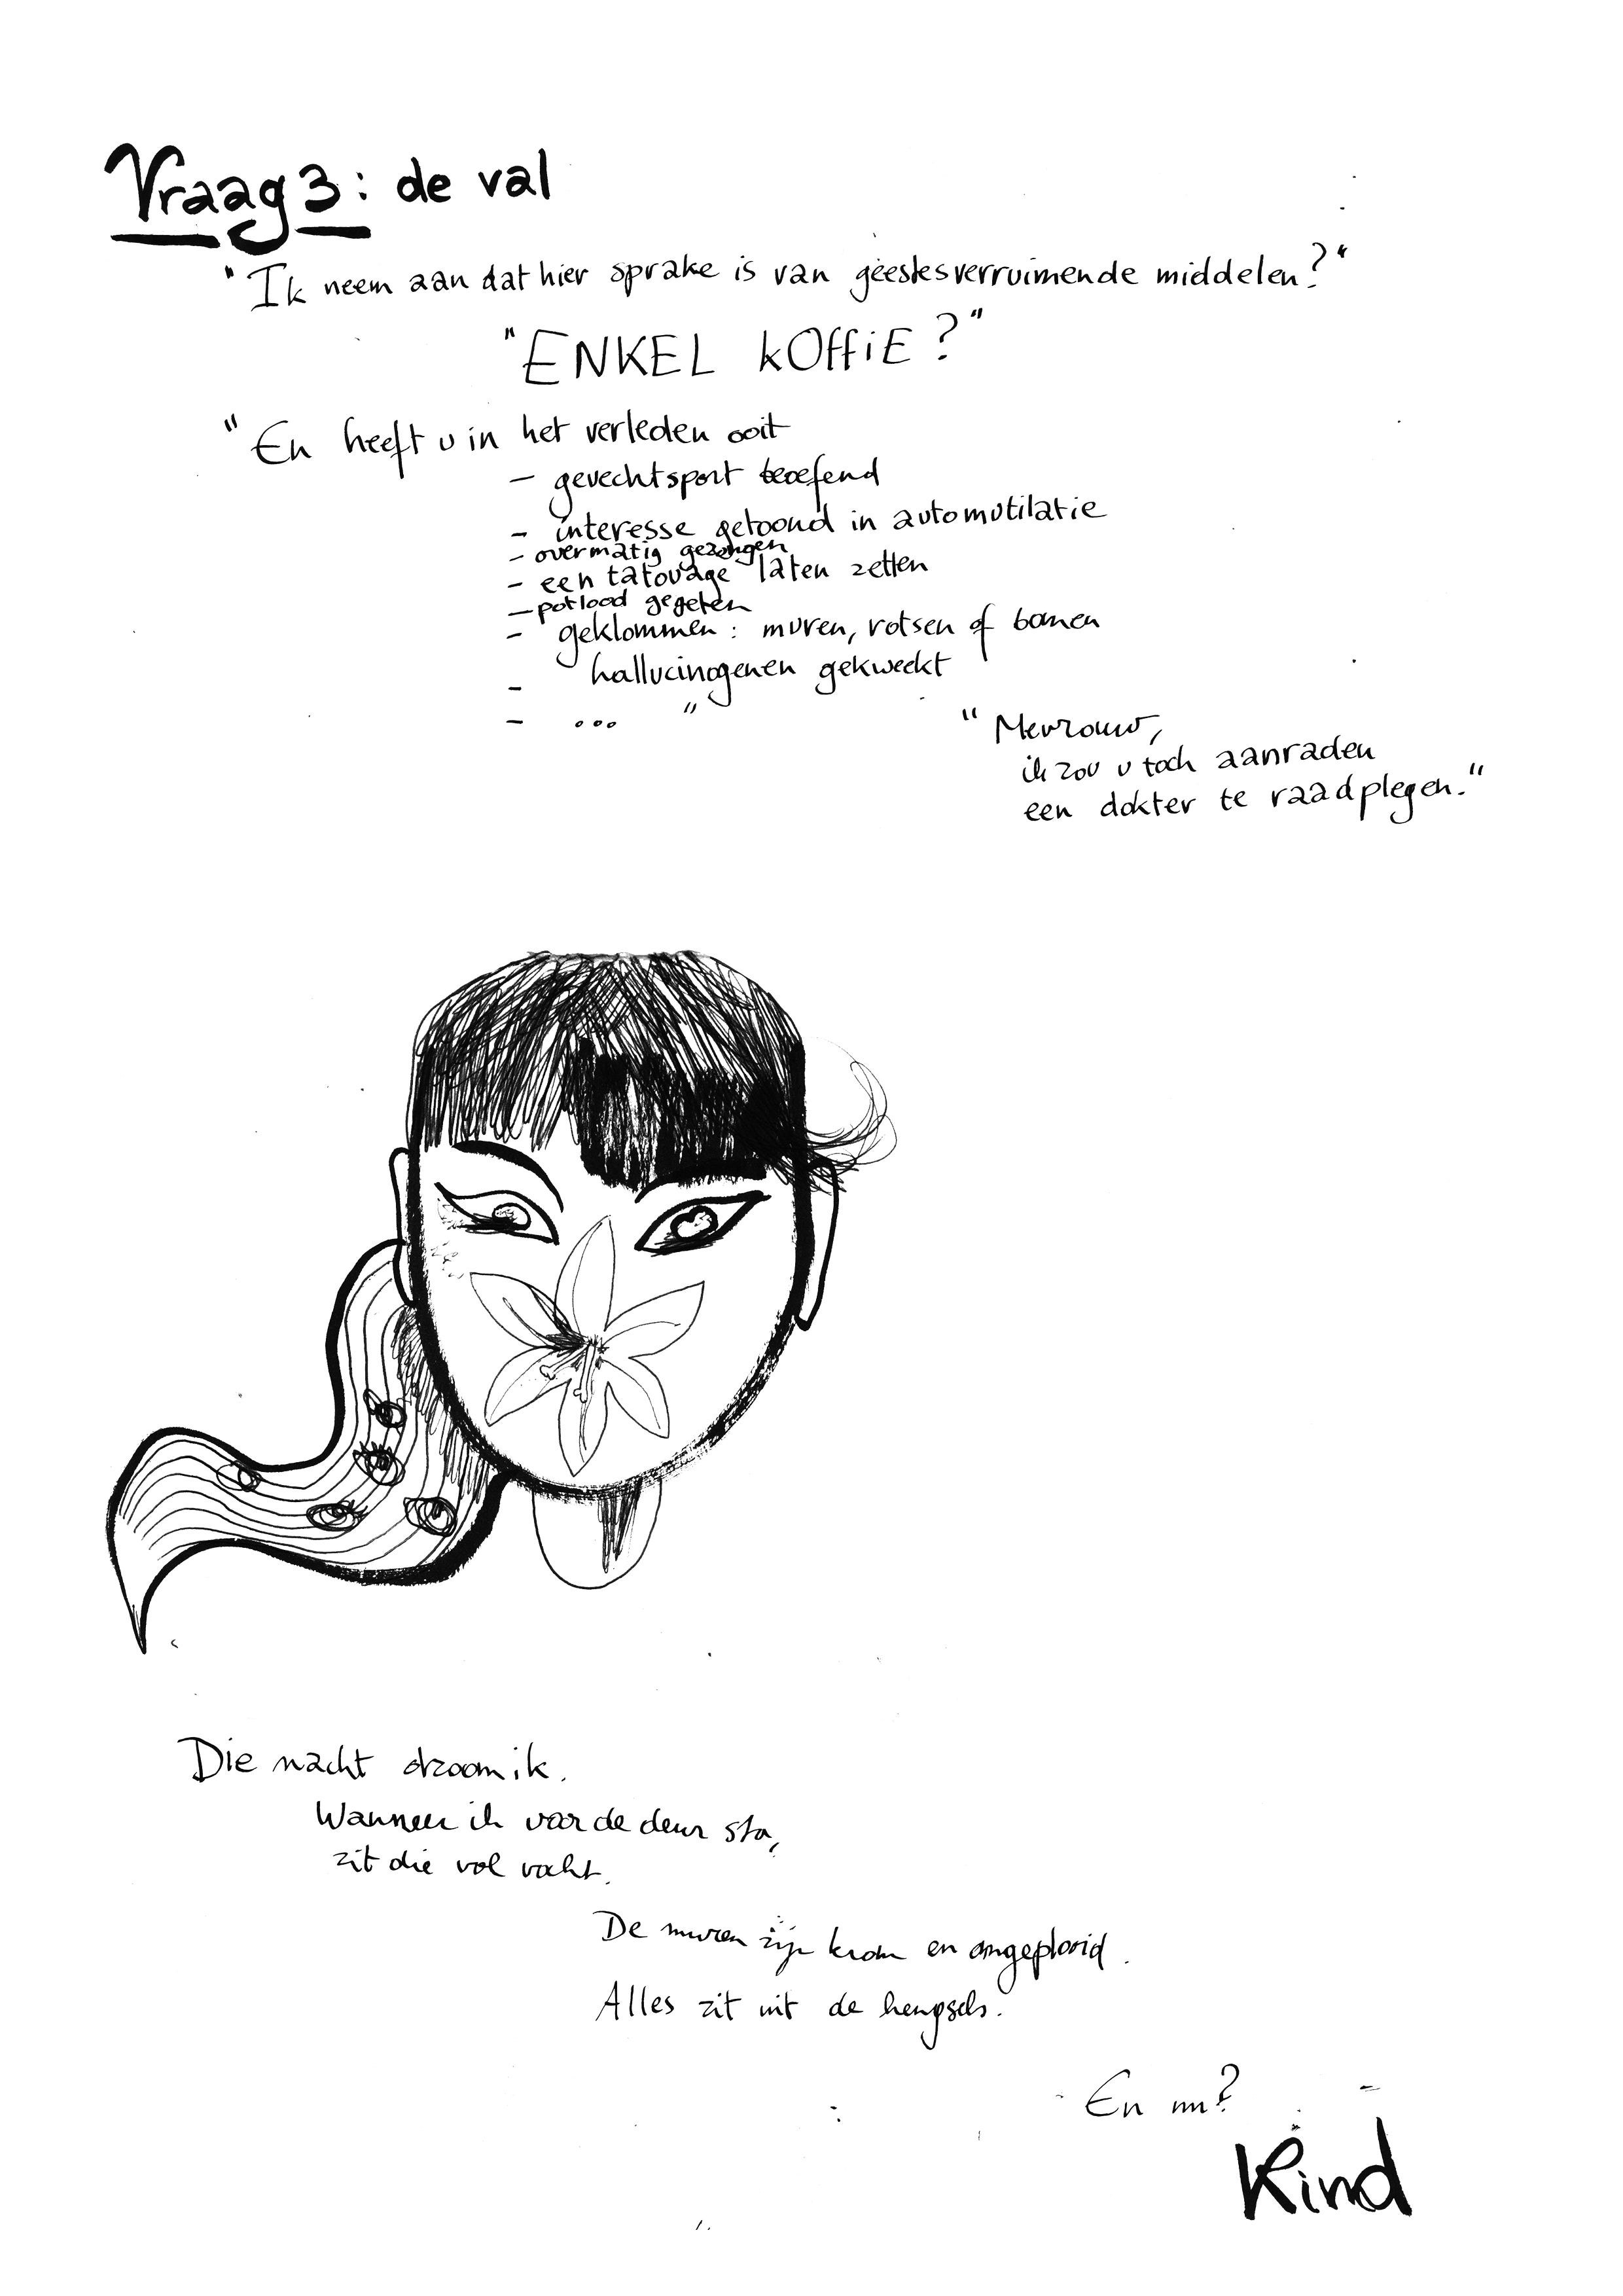 Vraag 3: de val
"Ik neem aan dat hier sprake is van geestesverruimende middelen?"
"ENKEL KOffiE?"
"En heeft u in het verleden ooit
- gevechtsport beoefend
- interesse getoond in automutilatie
- overmatig gezongen
- een tatouage laten zetten
- potlood gegeten
- geklommen: muren, rotsen of bomen
- hallucinogenen gekweekt
- ... "
"Mevrouw,
ik zou u toch aanraden
een dokter te raadplegen."
Die nacht droom ik.
Wanneer ik voor de deur sta,
zit die vol vocht.
De muren zijn krom en omgeplooid.
Alles zit uit de hengsels.
En nu?
Kind